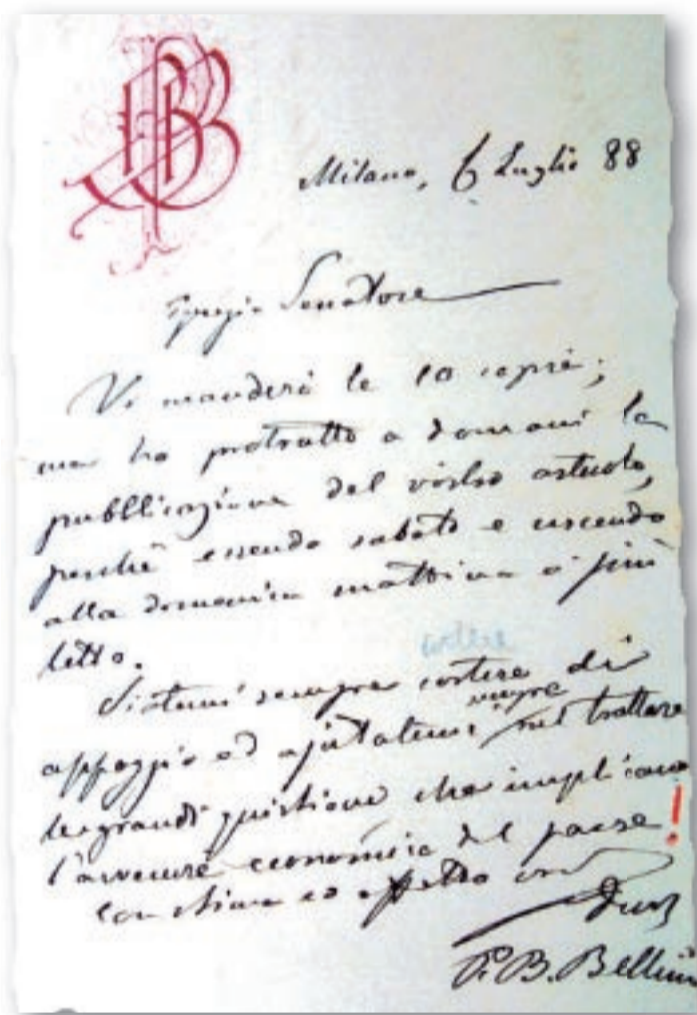 Milano, 6 Luglio 88
Egregio Senatore
Vi manderò le 10 copie;
ma ho protratto a domani la
pubblicazione del vostro articolo,
perchè essendo sabato e uscendo
alla domenica mattina è più
letto.
cortese
Siatemi sempre cortese di
appoggio ed ajutatemi sempre nel trattare
le grandi quistioni che implicano
l'avvenire economico del paese!
con stima ed affetto
P. B. Bellini